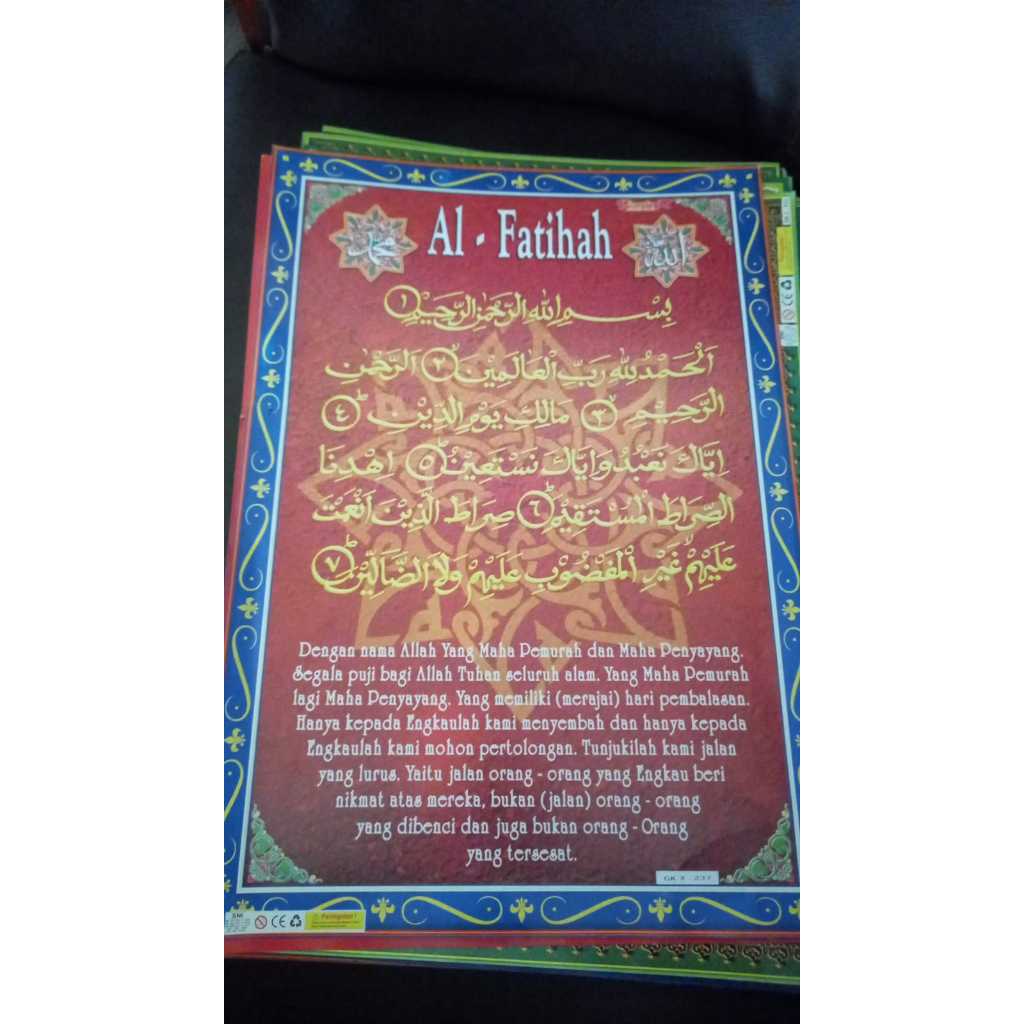 Al - Fatihah
محمد
الله
بِسْمِ اللهِ الرَّحْمٰنِ الرَّحِيْمِ ١
اَلْحَمْدُ لِلّٰهِ رَبِّ الْعَالَمِيْنَ ٢ الرَّحْمٰنِ
الرَّحِيْمِ ٣ مَالِكِ يَوْمِ الدِّيْنِ ٤
اِيَّاكَ نَعْبُدُ وَاِيَّاكَ نَسْتَعِيْنُ ٥ اِهْدِنَا
الصِّرَاطَ الْمُسْتَقِيْمَ ٦ صِرَاطَ الَّذِيْنَ اَنْعَمْتَ
عَلَيْهِمْ غَيْرِ الْمَغْضُوْبِ عَلَيْهِمْ وَلَا الضَّالِّيْنَ ٧
Dengan nama Allah Yang Maha Pemurah dan Maha Penyayang.
Segala puji bagi Allah Tuhan seluruh alam. Yang Maha Pemurah
lagi Maha Penyayang. Yang memiliki (merajai) hari pembalasan.
Hanya kepada Engkaulah kami menyembah dan hanya kepada
Engkaulah kami mohon pertolongan. Tunjukilah kami jalan
yang lurus. Yaitu jalan orang - orang yang Engkau beri
nikmat atas mereka, bukan (jalan) orang - orang
yang dibenci dan juga bukan orang - Orang
yang tersesat.
SNI
CE
Peringatan !